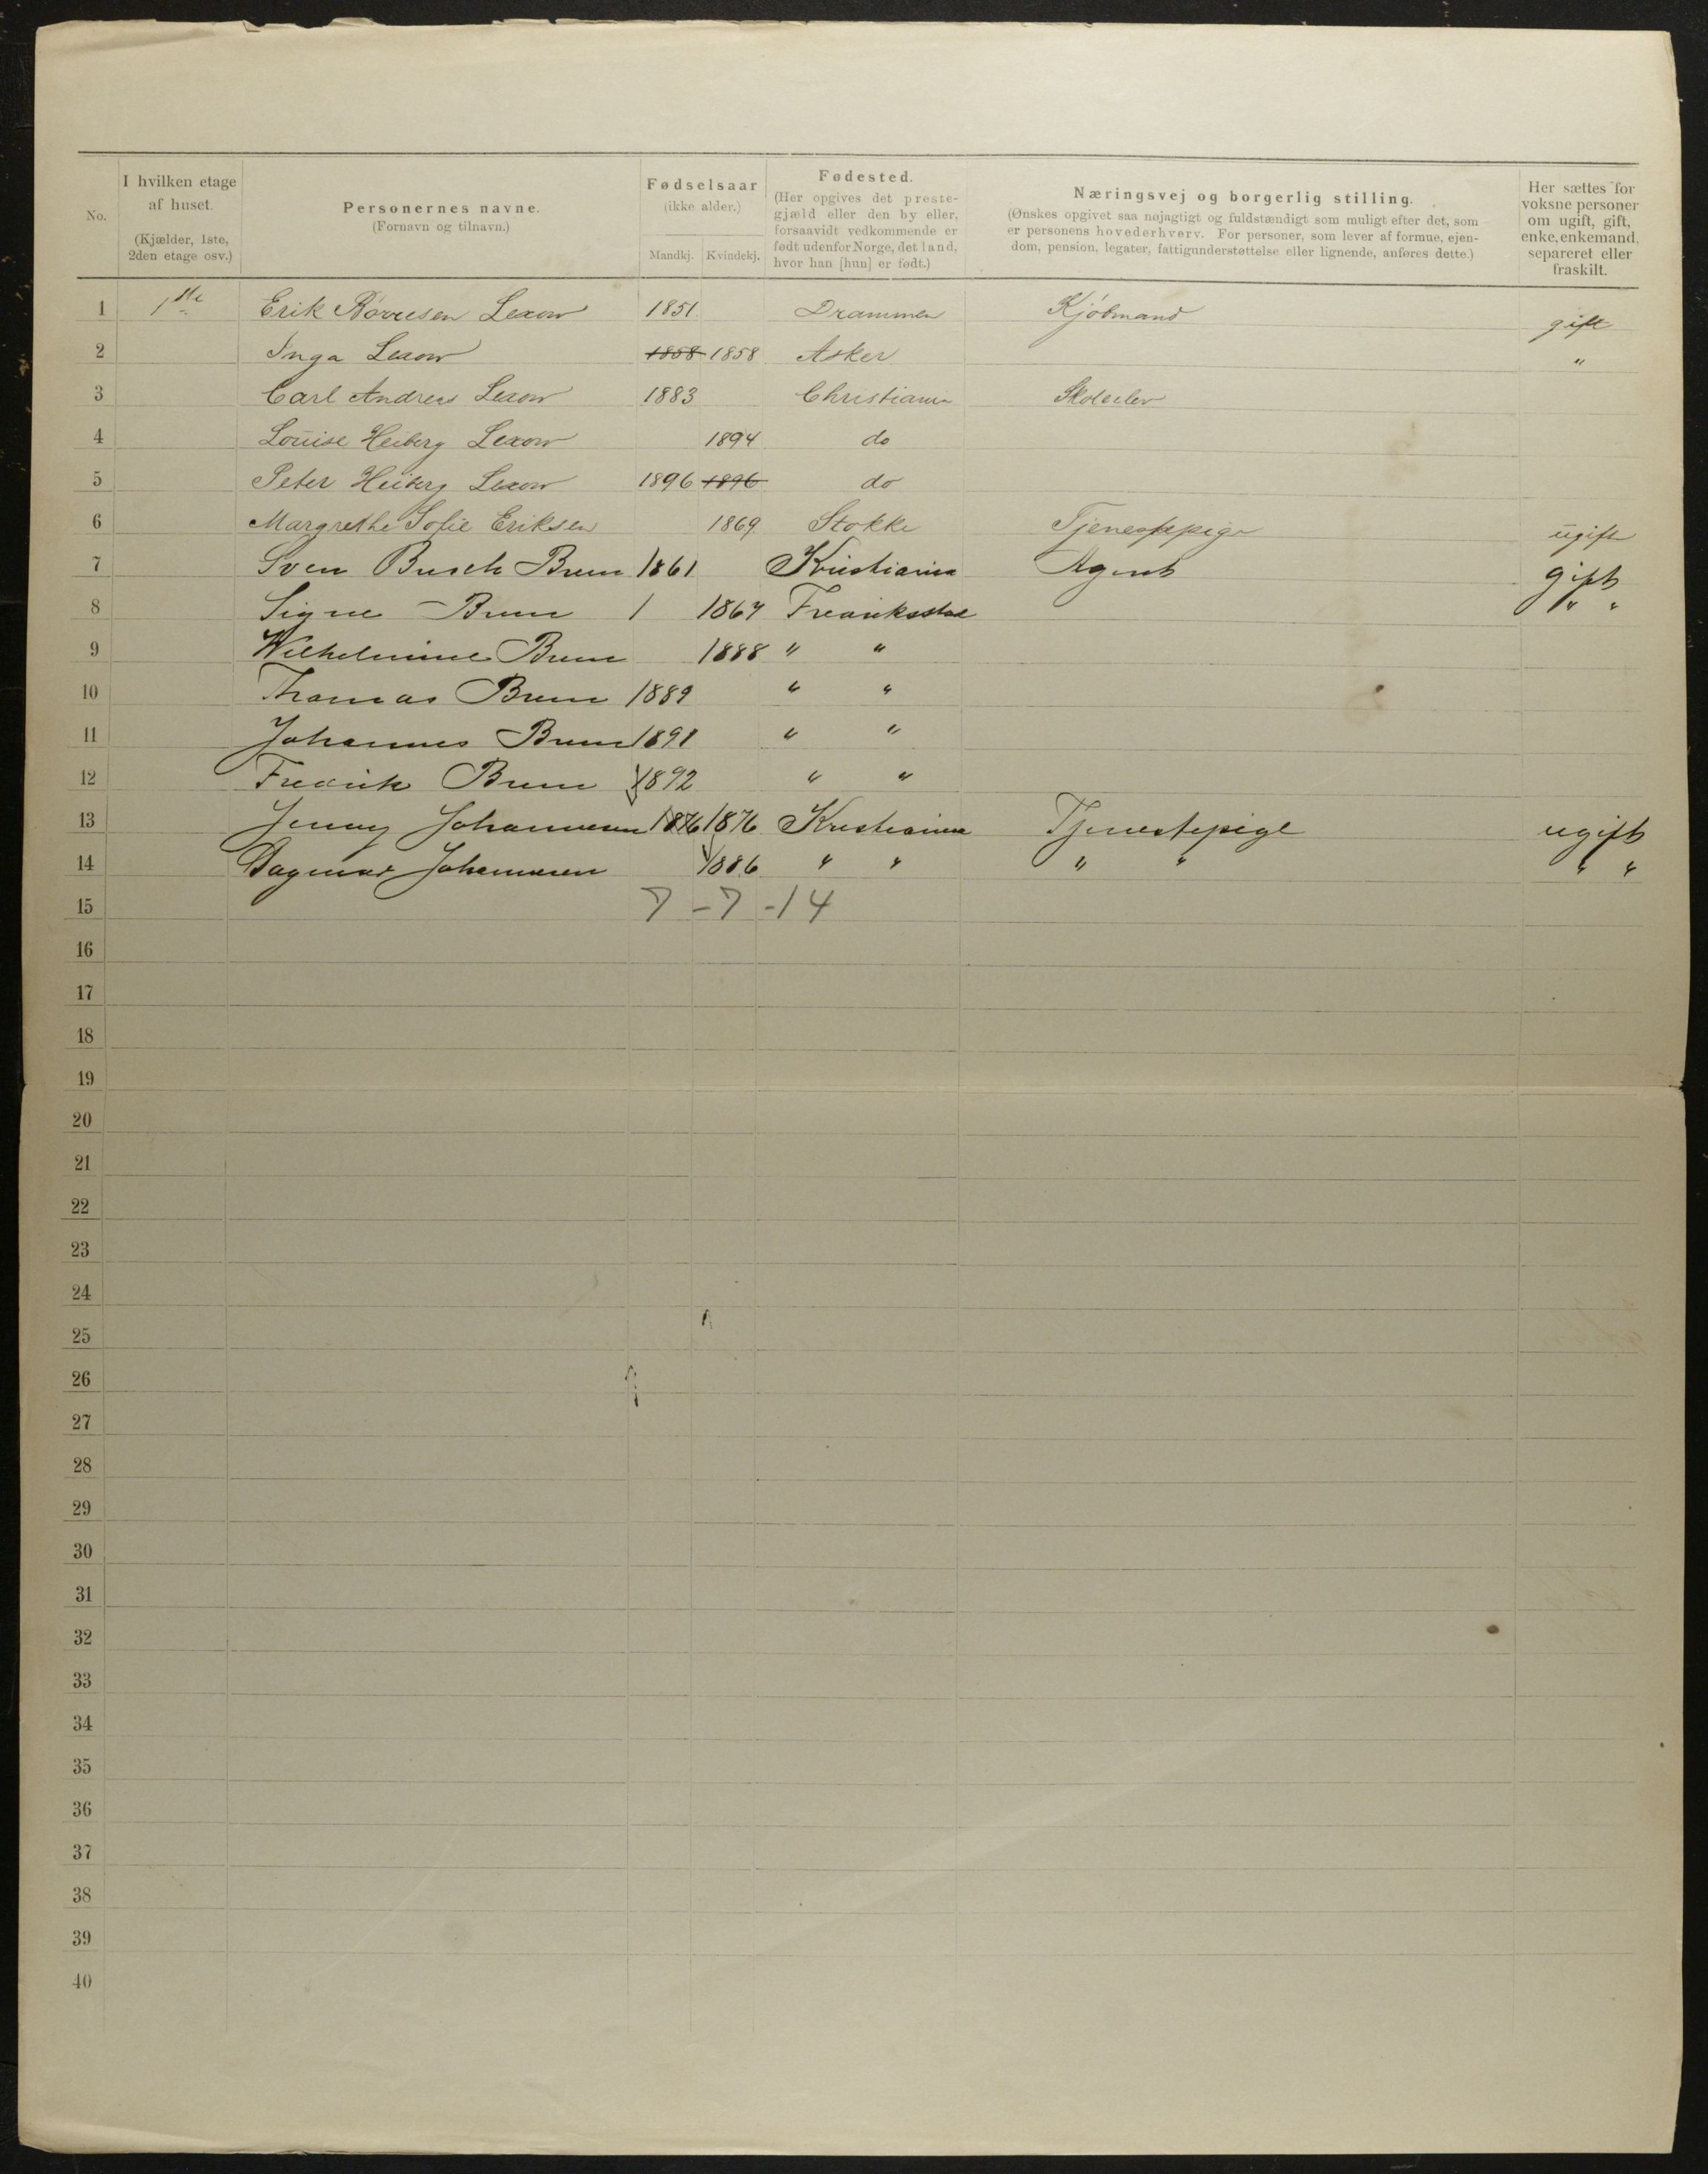 No.
I hvilken etage af huset. (Kjælder, 1ste, 2den etage osv.)
Personernes navne. (Fornavn og tilnavn.)
Fødselsaar (ikke alder.)
Mandkj. Kvindekj.
Fødested. (Her opgives det prestegjæld eller den by eller, forsaavidt vedkommende er født udenfor Norge, det land, hvor han [hun] er født.)
Næringsvej og borgerlig stilling. (Ønskes opgivet saa nøjagtigt og fuldstændigt som muligt efter det, som er personens hovederhverv. For personer, som lever af formue, ejendom, pension, legater, fattigunderstøttelse eller lignende, anføres dette.)
Her sættes for voksne personer om ugift, gift, enke, enkemand, separeret eller fraskilt.
1 1ste Erik Børresen Lexow 1851 Drammen Kjøbmand gift
2 Inga Lexow 1858 1858 Asker "
3 Carl Andreas Lexow 1883 Christiania Skoleelev
4 Louise Heiberg Lexow 1894 do
5 Peter Heiberg Lexow 1896 1896 do
6 Margrethe Sofie Eriksen 1869 Stokke Tjenestepige ugift
7 Sven Busch Brun 1861 Kristiania Agent gift
8 Signe Brun 1867 Fredriksstad " "
9 Wilhelmine Brun 1888 " "
10 Thomas Brun 1889 " "
11 Johannes Brun 1891 " "
12 Fredrik Brun 1892 " "
13 Jenny Johannesen 1876 1876 Kristiania Tjenestepige ugift
14 Dagmar Johannesen 1886 " " " " " "
15 7 - 7 - 14
16
17
18
19
20
21
22
23
24
25
26
27
28
29
30
31
32
33
34
35
36
37
38
39
40